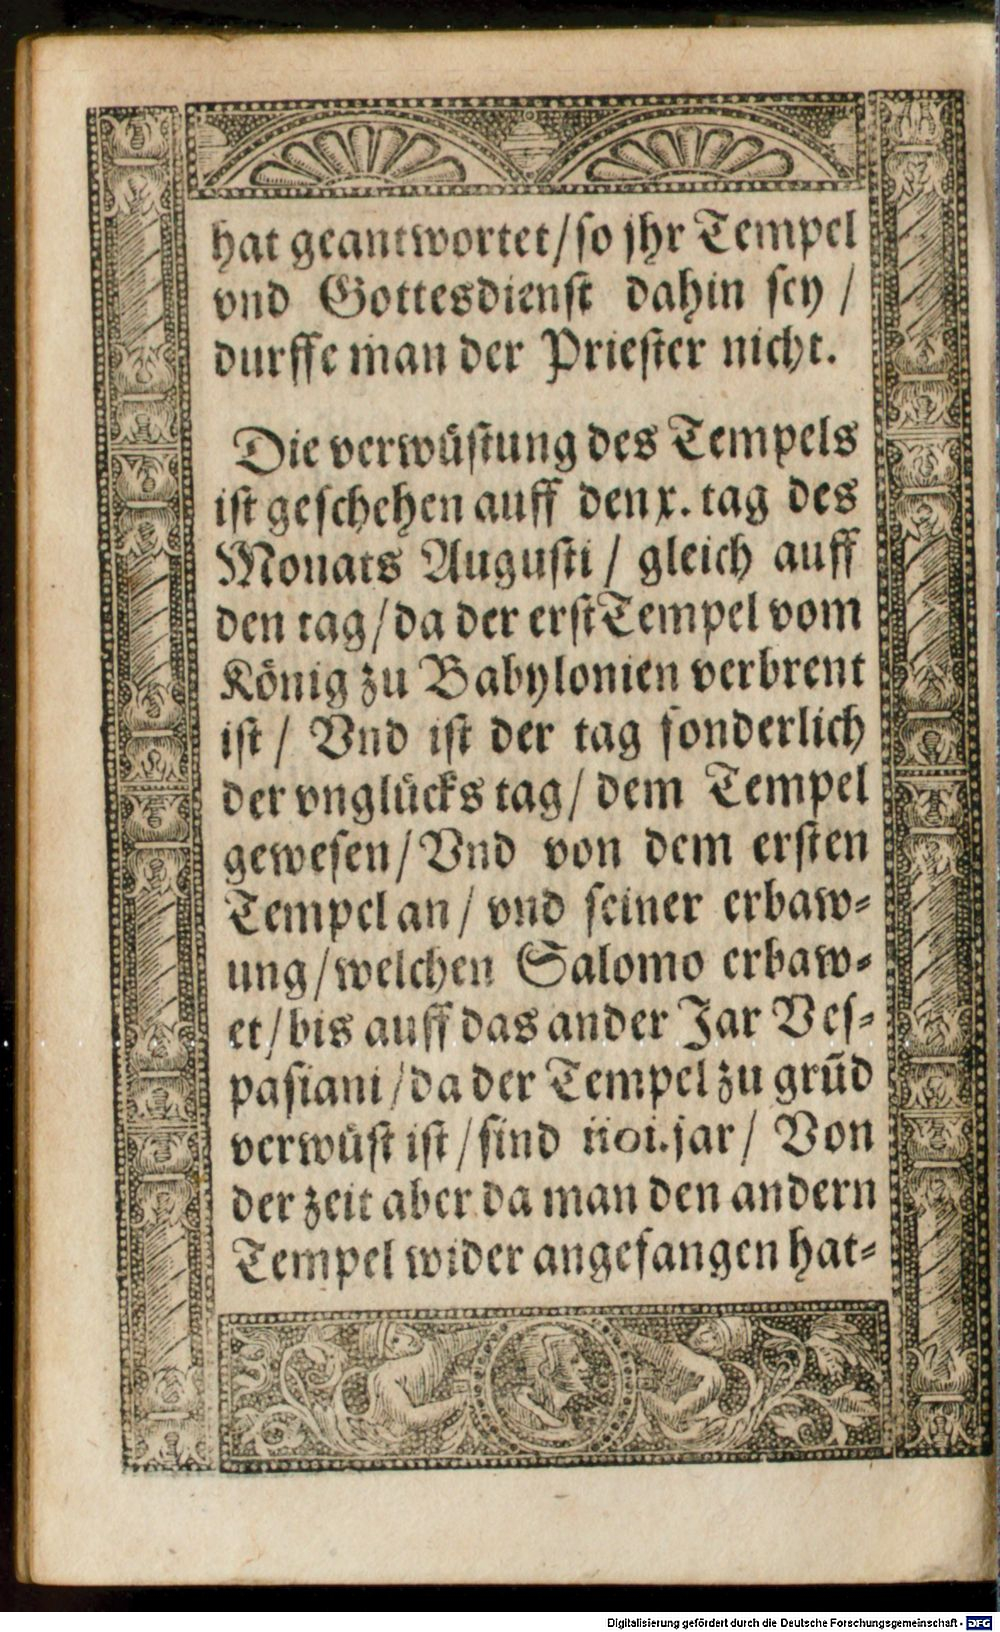 hat geantwortet/so jhr Tempel
vnd Gottesdienst dahin sey /
durffe man der Priester nicht.
Die verwüstung des Tempels
ist geschehen auff den x. tag des
Monats Augusti / gleich auff
den tag/da der erst Tempel vom
König zu Babylonien verbrent
ist / Vnd ist der tag sonderlich
der vnglücks tag/ dem Tempel
gewesen/ Vnd von dem ersten
Tempel an/ vnd seiner erbaw-
ung/welchen Salomo erbaw-
et/bis auff das ander Jar Ves-
pasiani/da der Tempel zu grũd
verwüst ist/sind iioi.jar/ Von
der zeit aber da man den andern
Tempel wider angefangen hat-
Digitalisierung gefördert durch die Deutsche Forschungsgemeinschaft - DFG